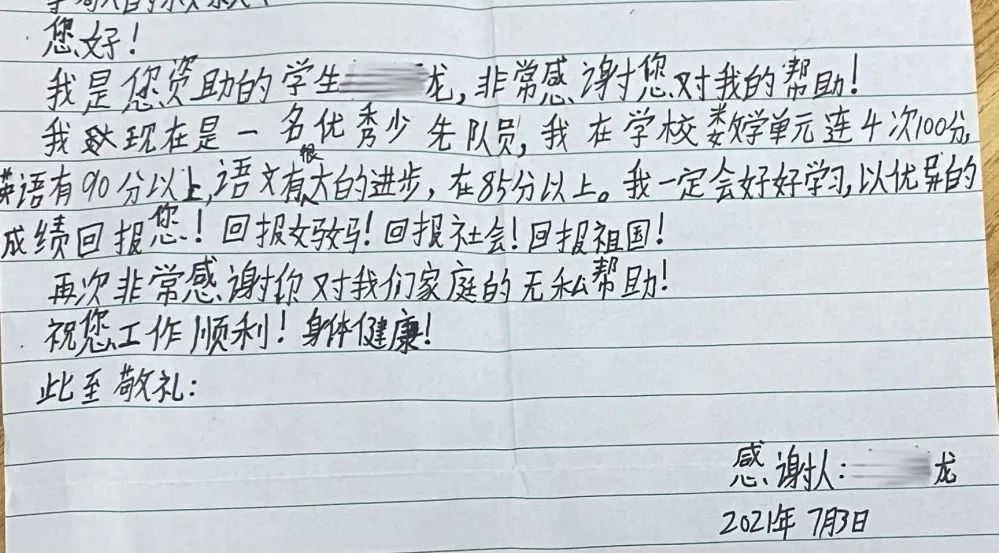 您好！
我是您资助的学生龙，非常感谢您对我的帮助！
我现在是一名优秀少先队员，我在学校数学单元连4次100分，
英语有90分以上，语文有很大的进步，在85分以上。我一定会好好学习，以优异的
成绩回报您！回报妈妈！回报社会！回报祖国！
再次非常感谢你对我们家庭的无私帮助！
祝您工作顺利！身体健康！
此至敬礼：
感谢人：龙
2021年7月3日